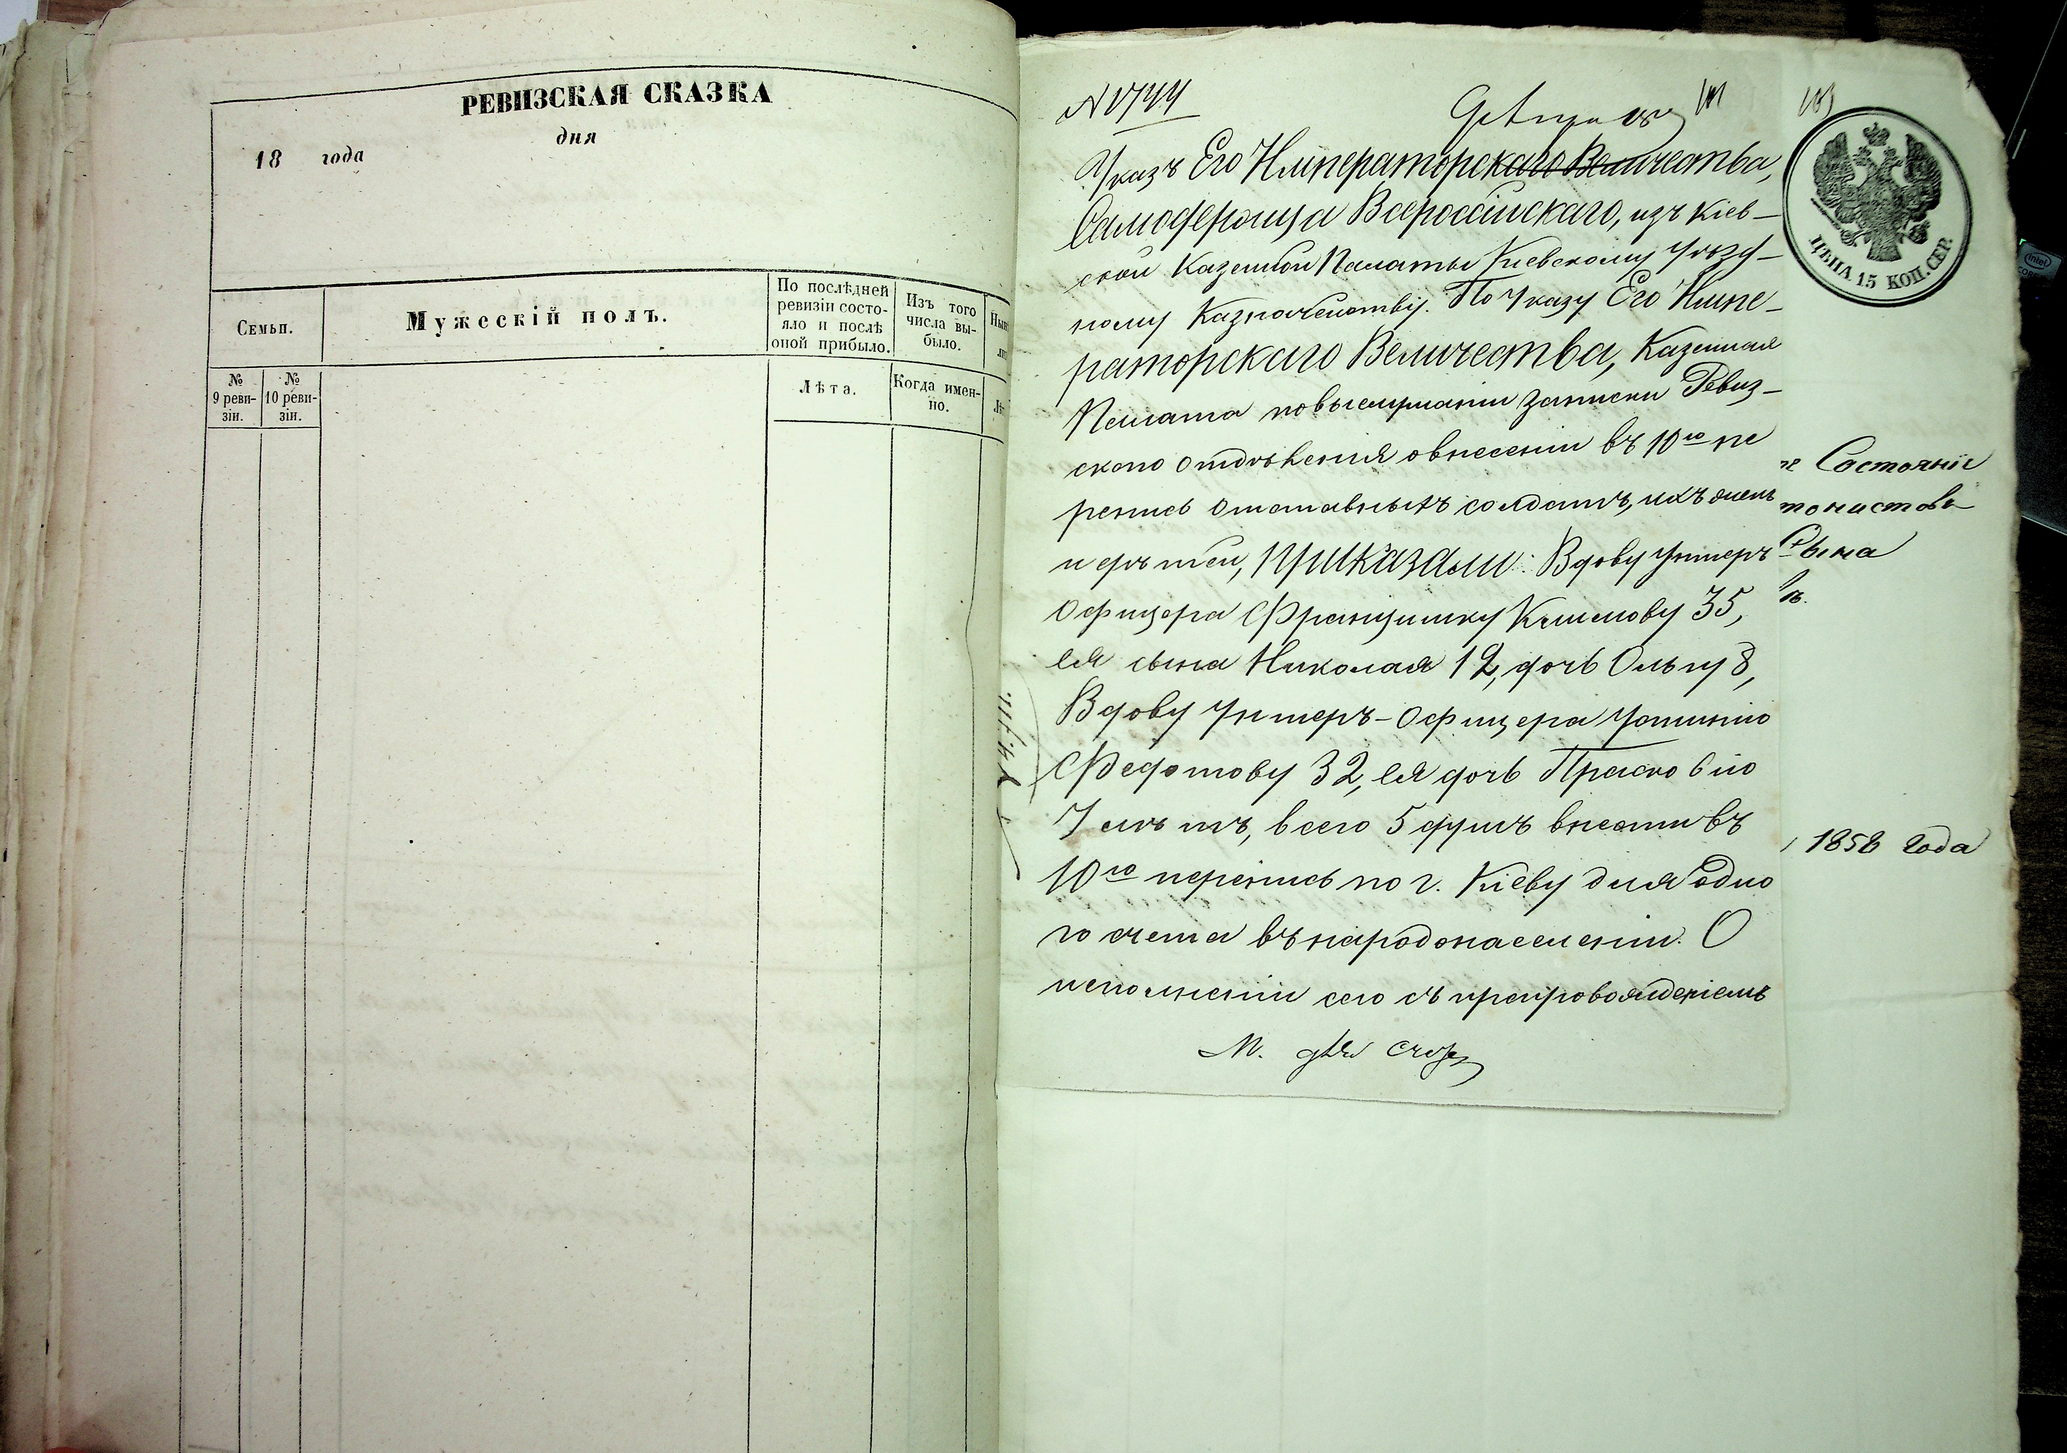 РЕВИЗСКАЯ СКАЗКА
18 года дня
Семьи.
Мужескій полъ.
По послѣдней
ревизіи состо-
яло и послѣ
оной прибыло.
Изъ того
числа вы-
было.
№
9 реви-
зіи.
№
10 реви-
зіи.
Лѣта.
Когда имен-
но.
Указъ Его Императорскаго Величества,
Самодержца Всероссійскаго, изъ Кіев-
ской Казенной Палаты Кіевскому Уѣзд-
ному Казначейству. По Указу Его Импе-
раторскаго Величества, Казенная
Палата по выслушаніи записки Ревиз-
скаго отдѣленія о внесеніи въ 10ю пе
репись отставныхъ солдатъ, ихъ жен
и дѣтей, приказали: Вдову Унтеръ
Офицера Францишку Климову 35,
ея сына Николая 12, дочь Ольгу 8,
Вдову Унтеръ-Офицера Устинію
Федотову 32, ея дочь Прасковію
7 лѣтъ, всего 5 душъ внести въ
10ю перепись по г. Кіеву для одно
го счета въ народонаселеніи. О
исполненіи сего съ препровожденіемъ
ЦѢНА 15 КОП. СЕР.
Состояніе
тонистовъ
Сына
1858 года
intel